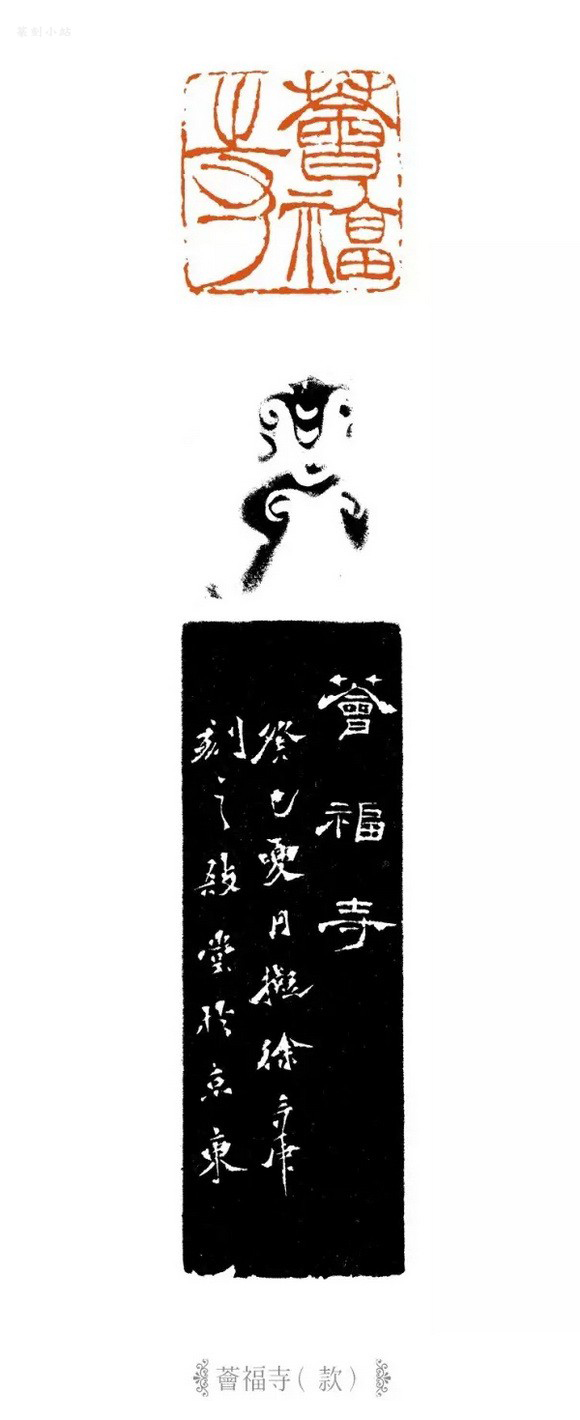 篆刻小站
薈福寺
薈福寺
癸巳夏月擬徐三庚
刻之毅堂於京東
薈福寺（款）